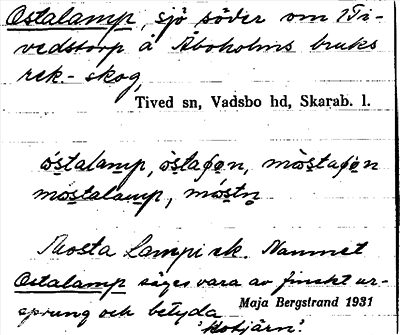 Ostalamp, sjö söder om Ti-
vedstorp å Aboholms bruks
rek.-skog,
Tived sn, Vadsbo hd, Skarab. l.
östalamp, östaɡøn, möstaɡøn
möstalamp, möstn̥
Mosta Lampi ek. Namnet
Ostalamp säges vara av finskt ur-
sprung och betyda
Maja Bergstrand 1931
'Kotjärn'.